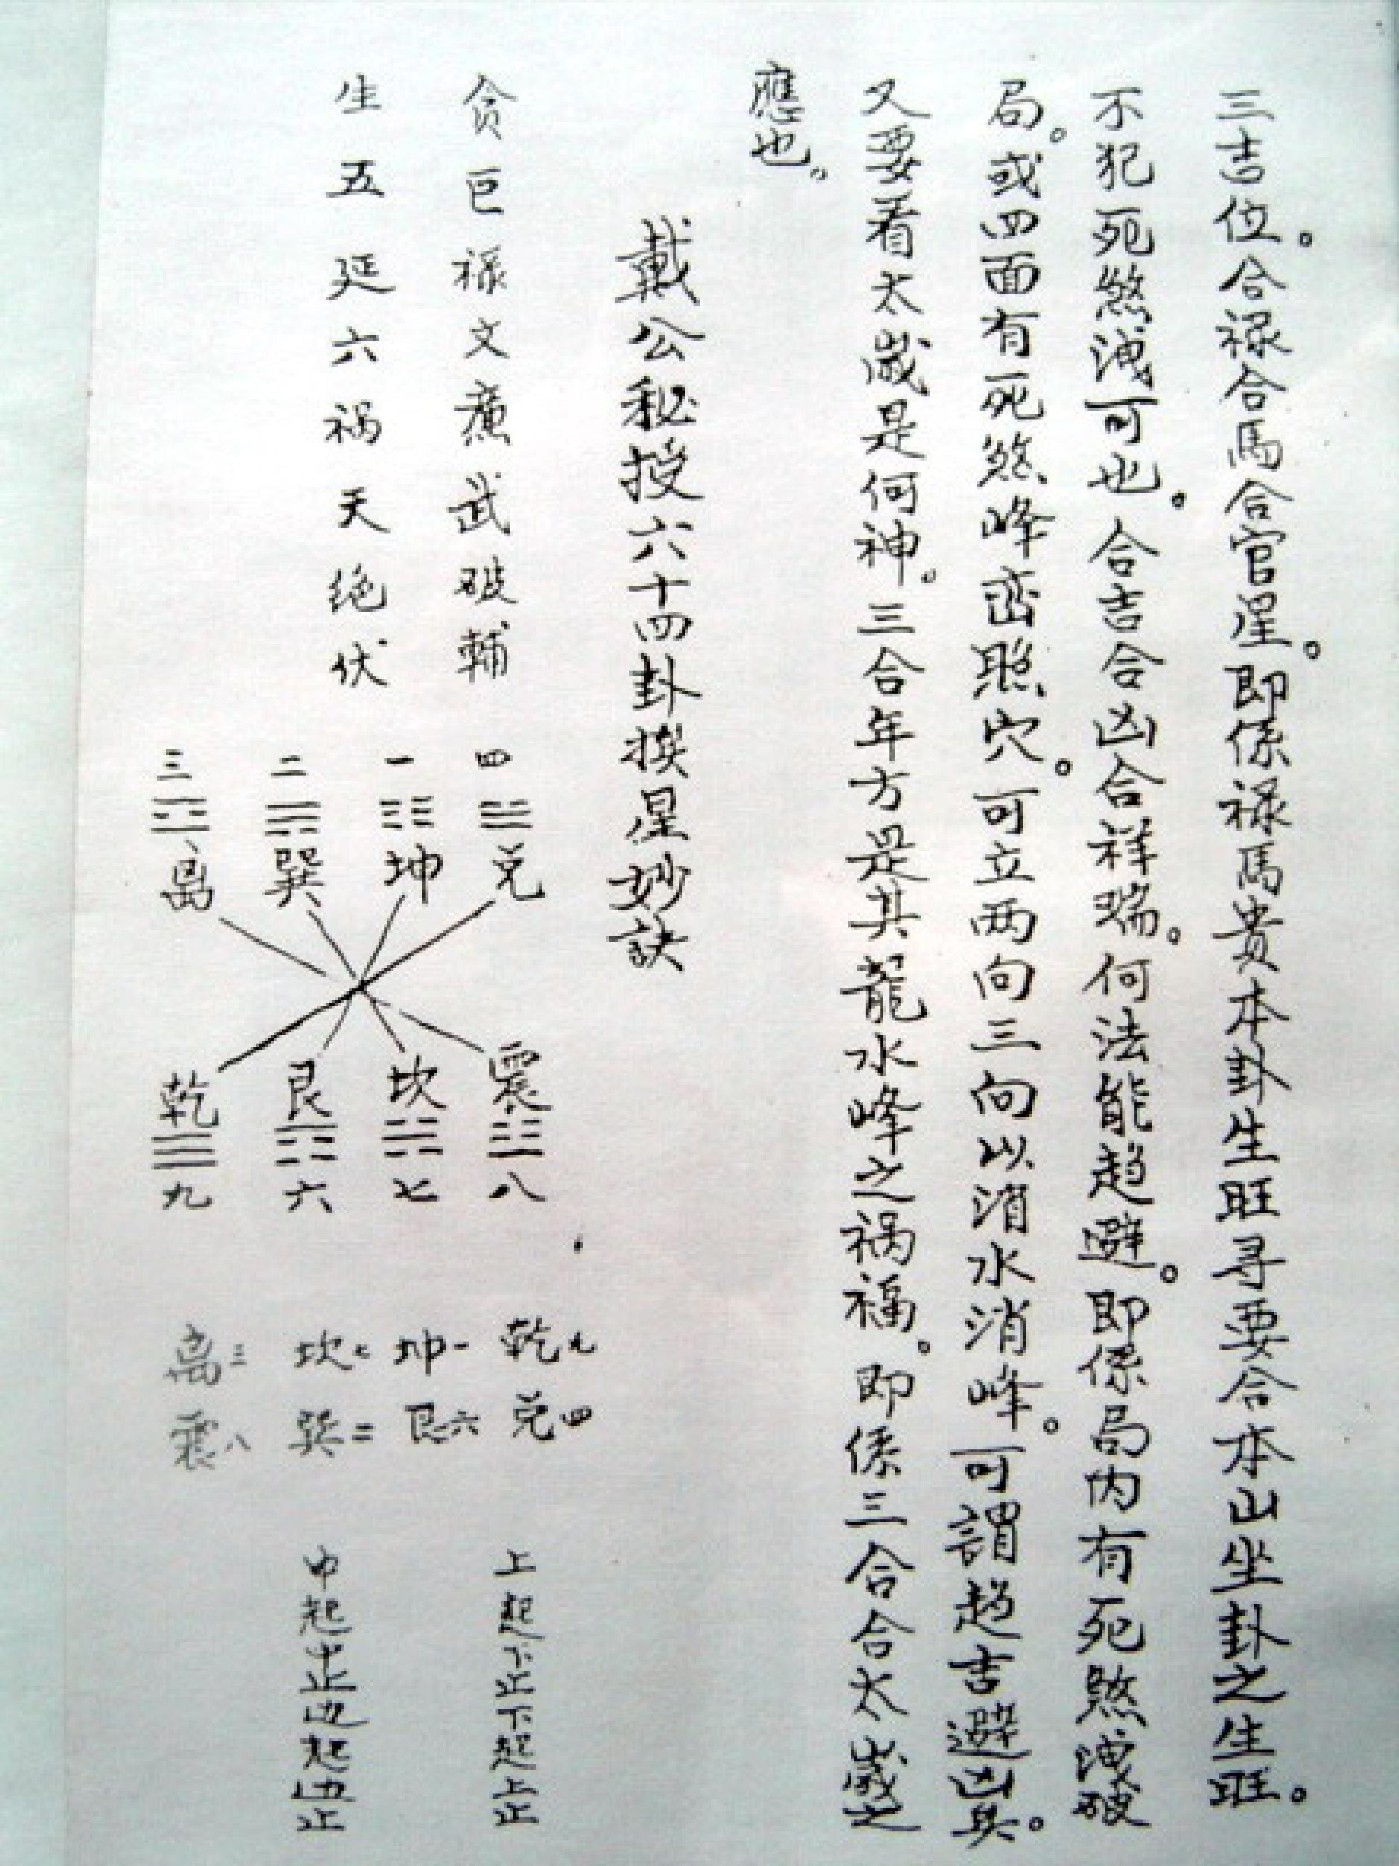 三吉位。合禄合馬合官星。即係禄馬貴本卦生旺寻要合本山坐卦之生旺。
不犯死煞洩可也。合吉合凶合祥瑞。何法能趋避。即係局内有死煞洩破
局。或四面有死煞峰峦照穴。可立两向三向以消水消峰。可謂趋吉避凶具。
又要看太歲是何神。三合年方是其龍水峰之祸福。即係三合合太歲之
應也。
戴公秘授六十四卦挨星妙訣
贪巨禄文廉武破輔
生五延六祸天绝伏
四 ☱ 兑
一 ☷ 坤
二 ☴ 巽
三 ☲ 离
震 ☳ 八
坎 ☵ 七
艮 ☶ 六
乾 ☰ 九
乾九 兑四
坤一 艮六
坎七 巽二
离三 震八
上起下止下起上止
中起中止边起边止